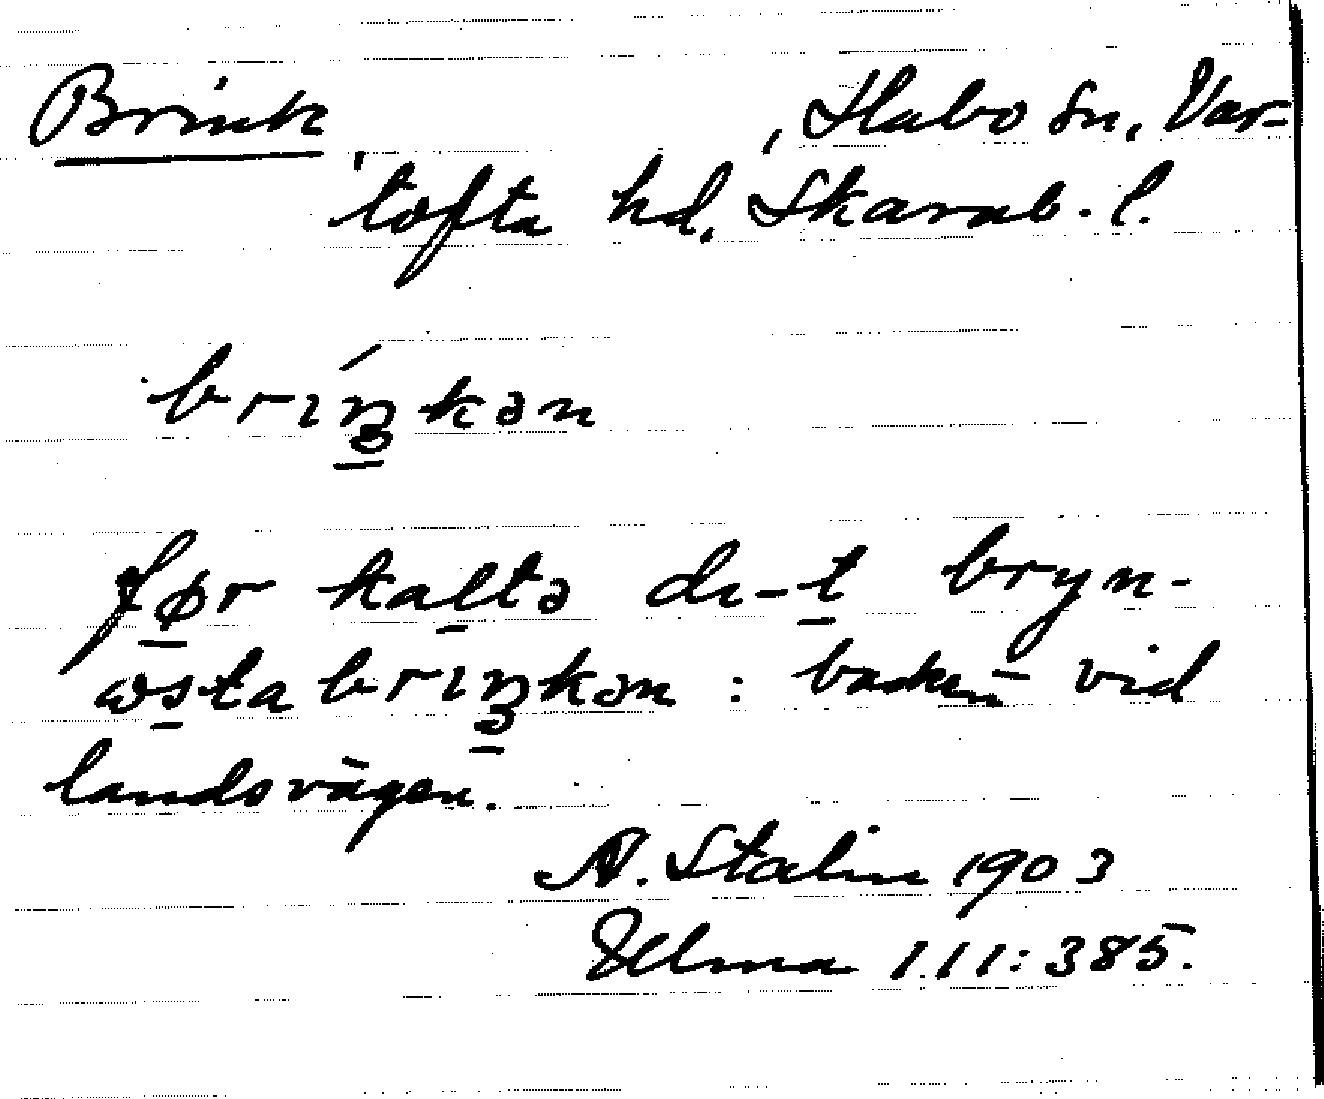 Brink , Habo sn, Var=
tofta hd, Skarab. l.
brıŋ́kən
før kaltə dı-t bryn-
ωsta brıŋkən : backen vid
landsvägen.
N. Stalin 1903
Ulma 111:385.